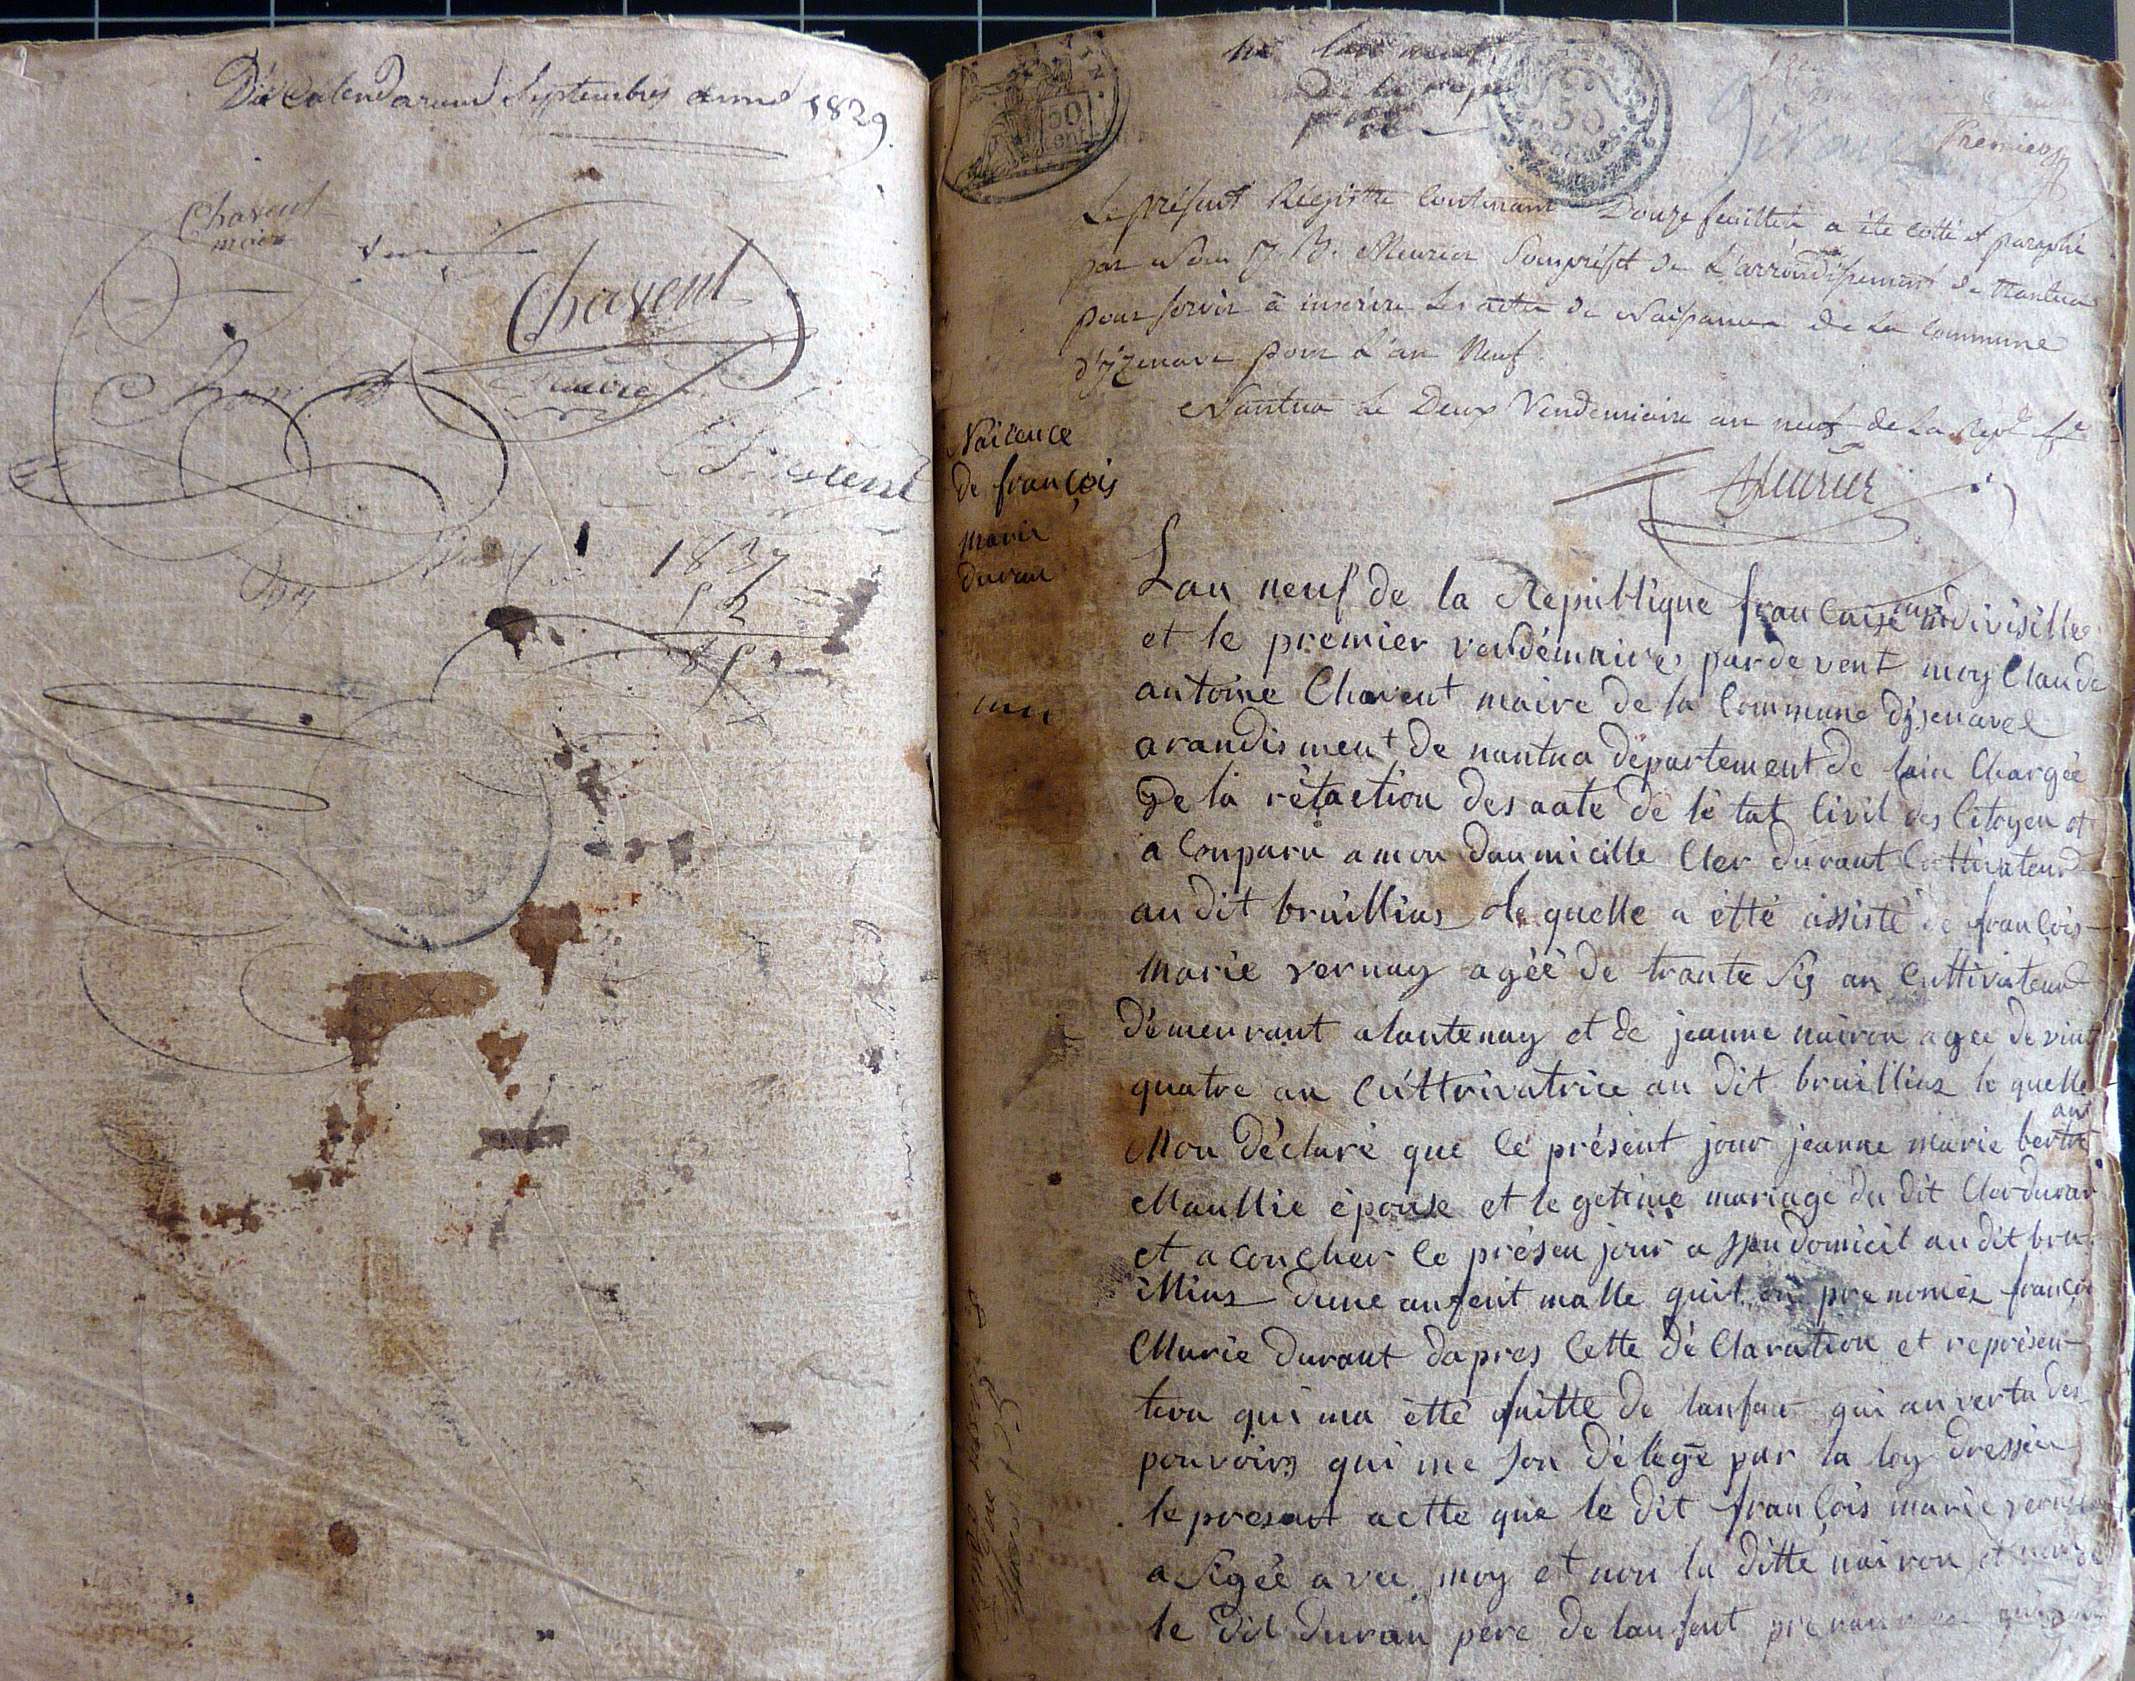 Die Calendarum Septembres anno 1829
Chavent
maire
Chavent
maire
Chavent
1837
12
né lan neuf
de la repu
50
cent
50
Premier
Le présent Régistre Contenant Douze feuillets a été cotté et paraphé
par Nous J. B. Meurier Souspréfet de L'arrondissement de Nantua
pour servir à inscrire les actes de Naissances de La Commune
d'Izenave pour L'an Neuf.
Nantua Le Deux Vendemiaire an neuf de La Repe. fse
Meurier
Naicence
de françois
Marie
duran
Lan neuf de la Republique francaise une indivisilles
et le premier vendémaires pardevent moy Claude
antoine Chavent maire de la Commune dysenavel
arandisment de nantua département de lain Chargée
De la rétaction des aate de lé tat Civil des Citoyen et
a Conparu a mon daumicille Cler durant Cultivateur
au dit bruillias le quelle a étté assisté de françois
Marie vernay agéé de trante sis an Cultivateur
démeurant a lantenay et de jeanne nairon agee de vint
quatre an Cúttrivatrice au dit bruillias le quelle
Mon déclaré que lé présent jour jeanne marie bertet
an
Maullie épouse et le getime mariage du dit Cler duran
et a coucher le présen jour a son domicil au dit bru
illias dune anfent malle quil on prenomés françoi
Marie durant dapres Cette dé Claration et représen-
tion qui ma étté faitte de lanfan qui an vertu des
pouvoirs qui me son délégé par la loy dressée
le presant actte que le dit françois marie vernay
a sigée avec moy et non la ditte nairon et non
le dit duran pere de lanfent